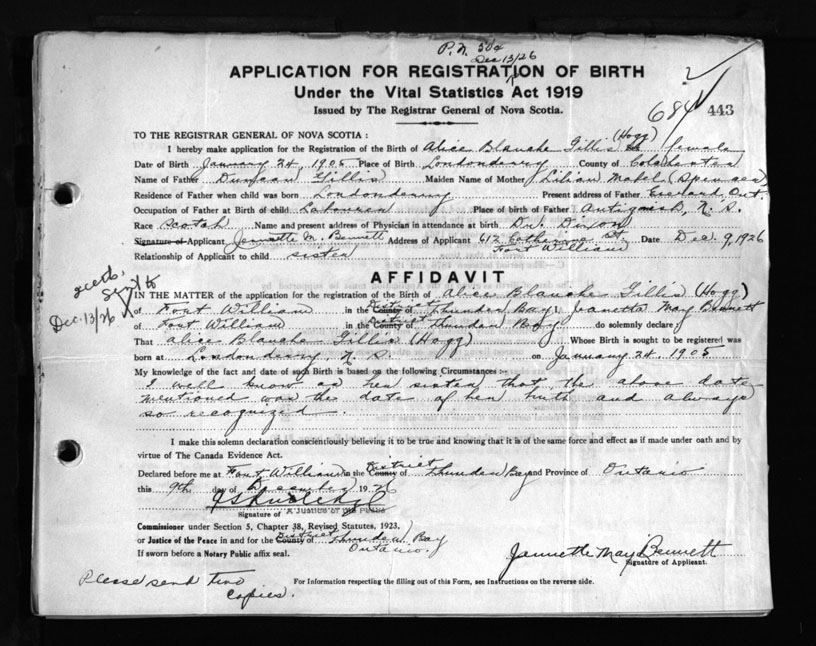 P.N. 50¢
Dec 13/26
APPLICATION FOR REGISTRATION OF BIRTH
Under the Vital Statistics Act 1919
Issued by The Registrar General of Nova Scotia.
684 443
TO THE REGISTRAR GENERAL OF NOVA SCOTIA :
I hereby make application for the Registration of the Birth of Alice Blanche Gillis (Hogg) female
Date of Birth January 24, 1905 Place of Birth Londonderry County of Colchester
Name of Father Duncan Gillis Maiden Name of Mother Lilian Mabel (Spencer)
Residence of Father when child was born Londonderry Present address of Father Ont.
Occupation of Father at Birth of child Labourer Place of birth of Father Antigonish, N. S.
Race Scotch Name and present address of Physician in attendance at birth Dr. Dixon
Signature of Applicant Jeanette M. Bennett Address of Applicant 612 Catherine St. Fort William Date Dec. 9, 1926
Relationship of Applicant to child sister
AFFIDAVIT
Sent to
Dec. 13/26
IN THE MATTER of the application for the registration of the Birth of Alice Blanche Gillis (Hogg)
of Fort William in the County of District Thunder Bay, Jeanette May Bennett
of Fort William in the County of District Thunder Bay do solemnly declare;
That Alice Blanche Gillis (Hogg) Whose Birth is sought to be registered was
born at Londonderry, N. S. on January 24, 1905
My knowledge of the fact and date of such Birth is based on the following Circumstances :-
I well know as her sister that the above date
mentioned was the date of her birth and always
so recognized.
I make this solemn declaration conscientiously believing it to be true and knowing that it is of the same force and effect as if made under oath and by
virtue of The Canada Evidence Act.
Declared before me at Fort William in the County of District Thunder Bay and Province of Ontario
this 9th day of December 1926
Signature of A JUSTICE OF THE PEACE
Commissioner under Section 5, Chapter 38, Revised Statutes, 1923.
or Justice of the Peace in and for the County of District Thunder Bay
If sworn before a Notary Public affix seal. Ontario.
Jannette May Bennett
Signature of Applicant.
Please send two
copies.
For Information respecting the filling out of this Form, see Instructions on the reverse side.